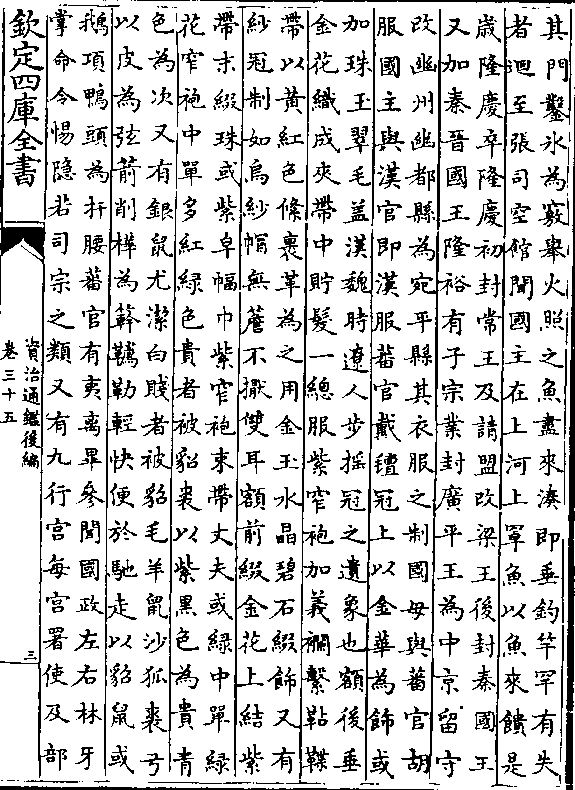 其門鑿氷為竅舉火照之魚盡來湊即垂釣竿罕有失
者迴至張司空館聞國主在上河上罩魚以魚來饋是
歲隆慶卒隆慶初封常王及請盟改梁王後封秦國王
又加秦晉國王隆裕有子宗業封廣平王為中京留守
改幽州幽都縣為宛平縣其衣服之制國母與蕃官胡
服國主與漢官即漢服蕃官戴氊冠上以金華為飾或
加珠玉翠毛蓋漢魏時遼人步揺冠之遺象也額後垂
金花織成夾帶中貯髮一總服紫窄袍加義襴繫鞊鞢
帶以黃紅色絛裹革為之用金玉水晶碧石綴飾又有
紗冠制如烏紗帽無簷不擫雙耳額前綴金花上結紫
帶末綴珠或紫皁幅巾紫窄袍束帶丈夫或綠巾單綠
花窄袍中單多紅綠色貴者被貂裘以紫黑色為貴青
色為次又有銀鼠尤潔白賤者被貂毛羊鼠沙狐裘弓
以皮為弦箭削樺為簳韉勒輕快便於馳走以貂鼠或
鵝項鴨頭為扞腰蕃官有夷离畢參聞國政左右林牙
掌命令惕隐若司宗之類又有九行宫每宫署使及部
欽定四庫全書
資治通鑑後編
卷三十五
三